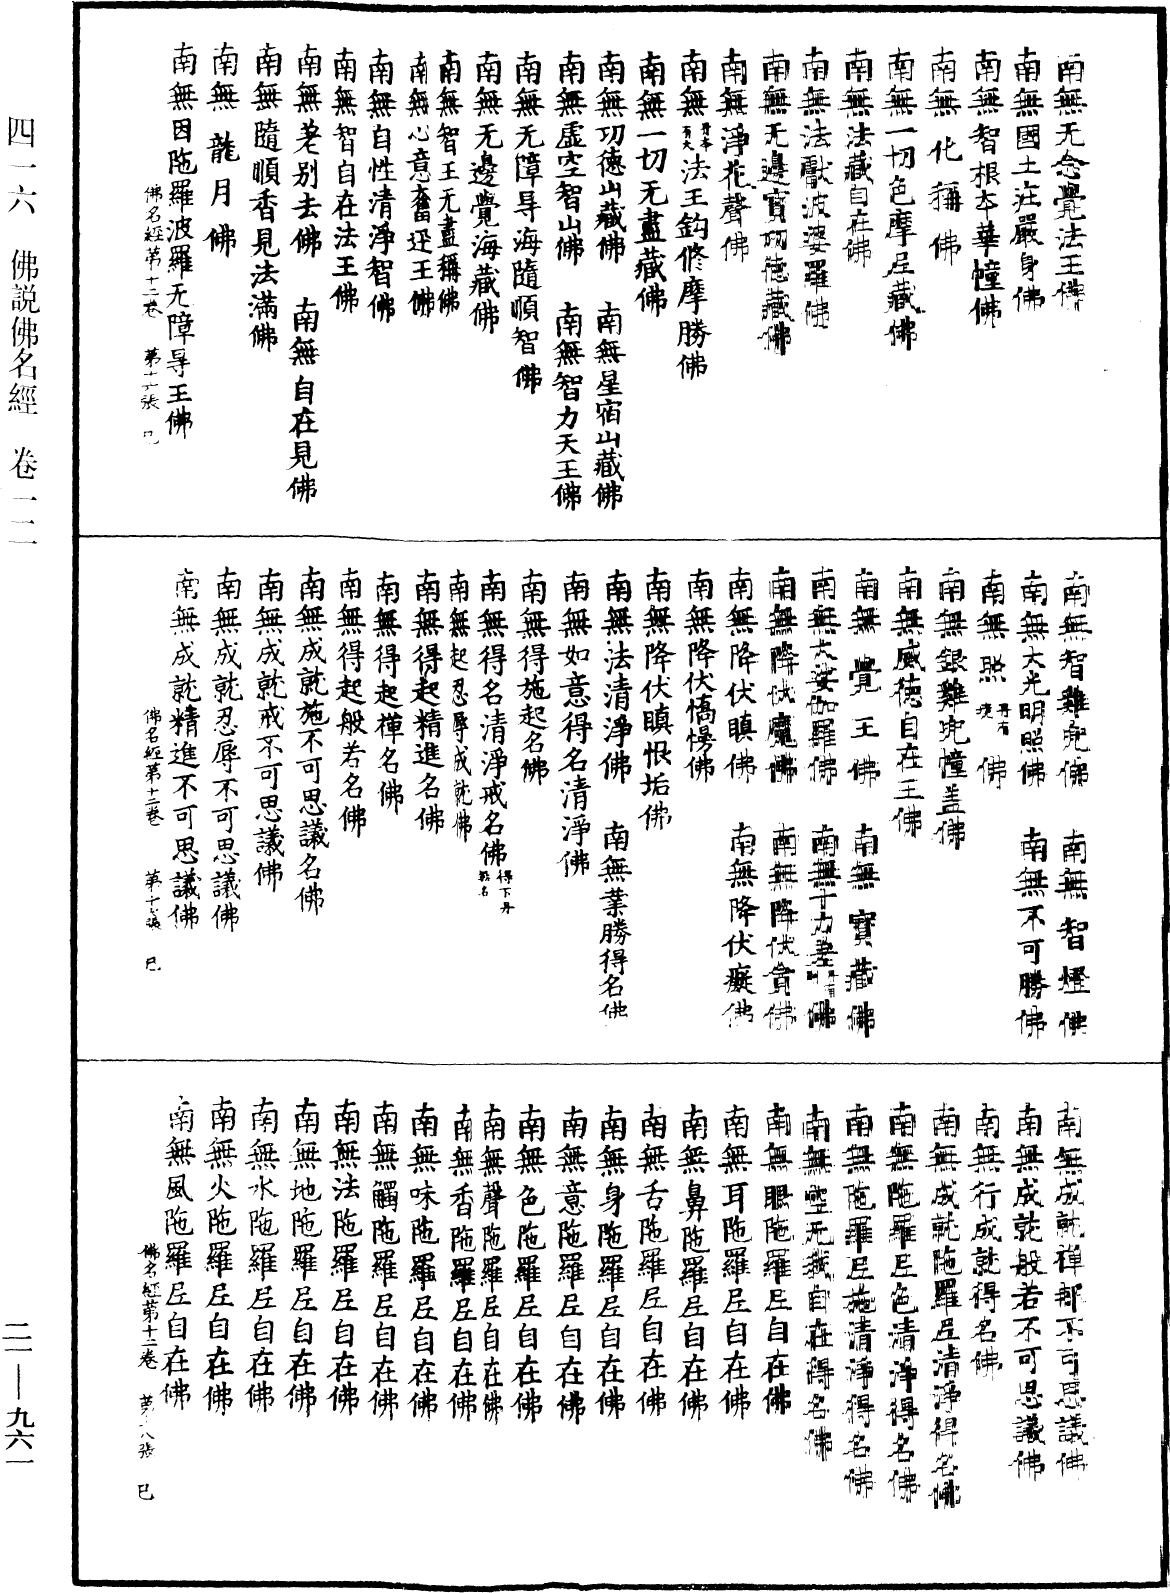 南無无念覺法王佛
南無國土莊嚴身佛
南無智根本華幢佛
南無化稱佛
南無一切色摩尼藏佛
南無法藏自在佛
南無法獻波婆羅佛
南無无邊寶功德藏佛
南無淨花聲佛
南無法王鈎修摩勝佛
南無一切无盡藏佛
南無功德山藏佛 南無星宿山藏佛
南無虛空智山佛 南無智力天王佛
南無无障㝵海隨順智佛
南無无邊覺海藏佛
南無智王无盡稱佛
南無心意奮迅王佛
南無自性清淨智佛
南無智自在法王佛
南無差别去佛 南無自在見佛
南無隨順香見法滿佛
南無龍月佛
南無因陁羅波羅无障㝵王佛
佛名經第十二卷 第十六張 巳
南無智雞兜佛 南無智燈佛
南無大光明照佛 南無不可勝佛
南無照佛
南無銀雞兜幢盖佛
南無威德自在王佛
南無覺王佛 南無寶藏佛
南無大娑伽羅佛 南無十力差佛
南無降伏魔佛 南無降伏貪佛
南無降伏瞋佛 南無降伏癡佛
南無降伏憍慢佛
南無降伏瞋恨垢佛
南無法清淨佛 南無業勝得名佛
南無如意得名清淨佛
南無得施起名佛
南無得名清淨戒名佛得下丹
南無起忍辱成就佛
南無得起精進名佛
南無得起禪名佛
南無得起般若名佛
南無成就施不可思議名佛
南無成就戒不可思議佛
南無成就忍辱不可思議佛
南無成就精進不可思議佛
佛名經第十二卷 第十七張 巳
南無成就禪那不可思議佛
南無成就般若不可思議佛
南無行成就得名佛
南無成就陁羅尼清淨得名佛
南無陁羅尼色清淨得名佛
南無陁羅尼施清淨得名佛
南無空无我自在得名佛
南無眼陁羅尼自在佛
南無耳陁羅尼自在佛
南無鼻陁羅尼自在佛
南無舌陁羅尼自在佛
南無身陁羅尼自在佛
南無意陁羅尼自在佛
南無色陁羅尼自在佛
南無聲陁羅尼自在佛
南無香陁羅尼自在佛
南無味陁羅尼自在佛
南無觸陁羅尼自在佛
南無法陁羅尼自在佛
南無地陁羅尼自在佛
南無水陁羅尼自在佛
南無火陁羅尼自在佛
南無風陁羅尼自在佛
佛名經第十二卷 第十八張 巳
四一六 佛説佛名經 卷一二
二一—九六一